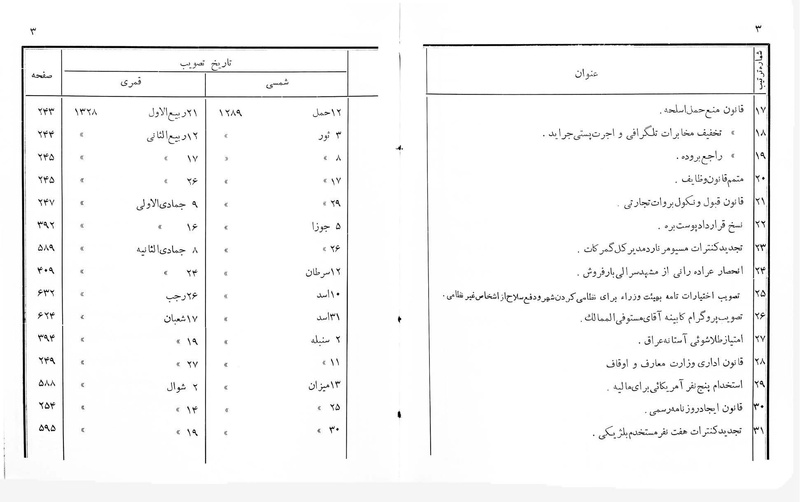 ۳
شماره ترتیب
عنوان
۱۷ قانون منع حمل اسلحه .
۱۸ » تخفیف مخابرات تلگرافی و اجرت پستی جراید .
۱۹ » راجع بروده .
۲۰ متمم قانون وظایف .
۲۱ قانون قبول و نکول بروات تجارتی .
۲۲ نسخ قرارداد پوست بره .
۲۳ تجدید کنترات مسیو مرنارد مدیر کل گمرکات .
۲۴ انحصار عراده رانی از مشهدسر الی بارفروش .
۲۵ تصویب اختیارات تامه بهیئت وزراء برای نظامی کردن شهر و دفع سلاح از اشخاص غیر نظامی .
۲۶ تصویب پروگرام کابینه آقای مستوفی الممالک .
۲۷ امتیاز طلاشوئی آستانه عراق .
۲۸ قانون اداری وزارت معارف و اوقاف
۲۹ استخدام پنج نفر آمریکائی برای مالیه .
۳۰ قانون ایجاد روزنامه رسمی .
۳۱ تجدید کنترات هفت نفر مستخدم بلژیکی .
۳
تاریخ تصویب
شمسی قمری صفحه
۱۲ حمل ۱۲۸۹ ۲۱ ربیع الاول ۱۳۲۸ ۲۴۳
۳ ثور » ۱۲ ربیع الثانی » ۲۴۴
۸ » » ۱۷ » » ۲۴۵
۱۷ » » ۲۶ » » ۲۴۵
۲۹ » » ۹ جمادی الاولی » ۲۴۷
۵ جوزا » ۱۶ » » ۳۹۲
۲۶ » » ۸ جمادی الثانیه » ۵۸۹
۱۲ سرطان » ۲۴ » » ۴۰۹
۱۰ اسد » ۲۶ رجب » ۶۳۲
۳۱ اسد » ۱۷ شعبان » ۶۲۴
۲ سنبله » ۱۹ » » ۳۹۴
۱۱ » » ۲۷ » » ۲۴۹
۱۳ میزان » ۲ شوال » ۵۸۸
۲۵ » » ۱۴ » » ۲۵۴
۳۰ » » ۱۹ » » ۵۹۵